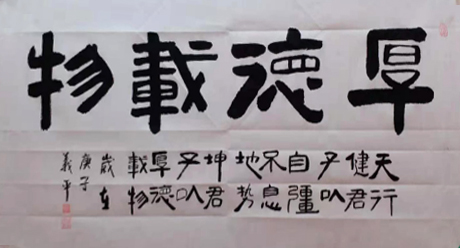 厚德載物
天行
健君
子以
自彊
不息
地勢
坤君
子以
厚德
載物
歲在
庚子
義平